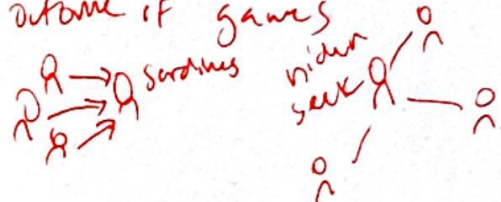 outcome if games
sardines
hiden
seek